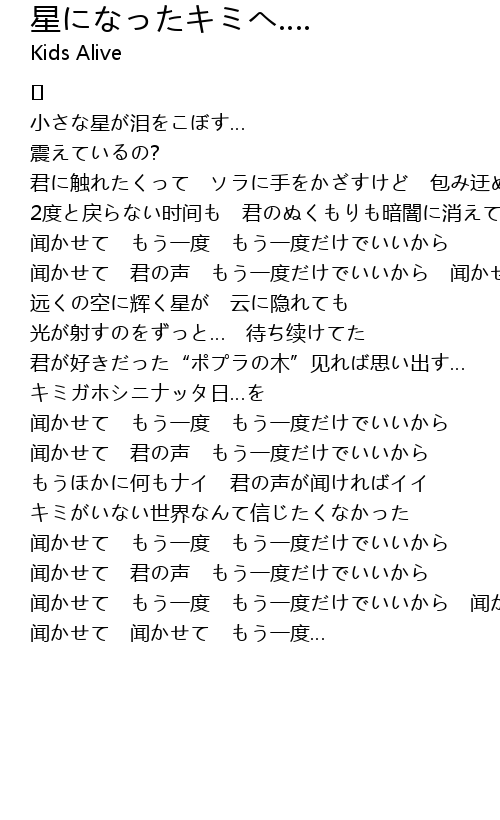 星になったキミへ....
Kids Alive
[]
小さな星が泪をこぼす...
震えているの?
君に触れたくって　ソラに手をかざすけど　包み迂め
2度と戻らない时间も　君のぬくもりも暗闇に消えて
聞かせて　もう一度　もう一度だけでいいから
聞かせて　君の声　もう一度だけでいいから　聞かせ
远くの空に辉く星が　云に隐れても
光が射すのをずっと...　待ち续けてた
君が好きだった“ポプラの木”见れば思い出す...
キミガホシニナッタ日...を
聞かせて　もう一度　もう一度だけでいいから
聞かせて　君の声　もう一度だけでいいから
もうほかに何もナイ　君の声が闻ければイイ
キミがいない世界なんて信じたくなかった
聞かせて　もう一度　もう一度だけでいいから
聞かせて　君の声　もう一度だけでいいから
聞かせて　もう一度　もう一度だけでいいから　聞か
聞かせて　聞かせて　もう一度...